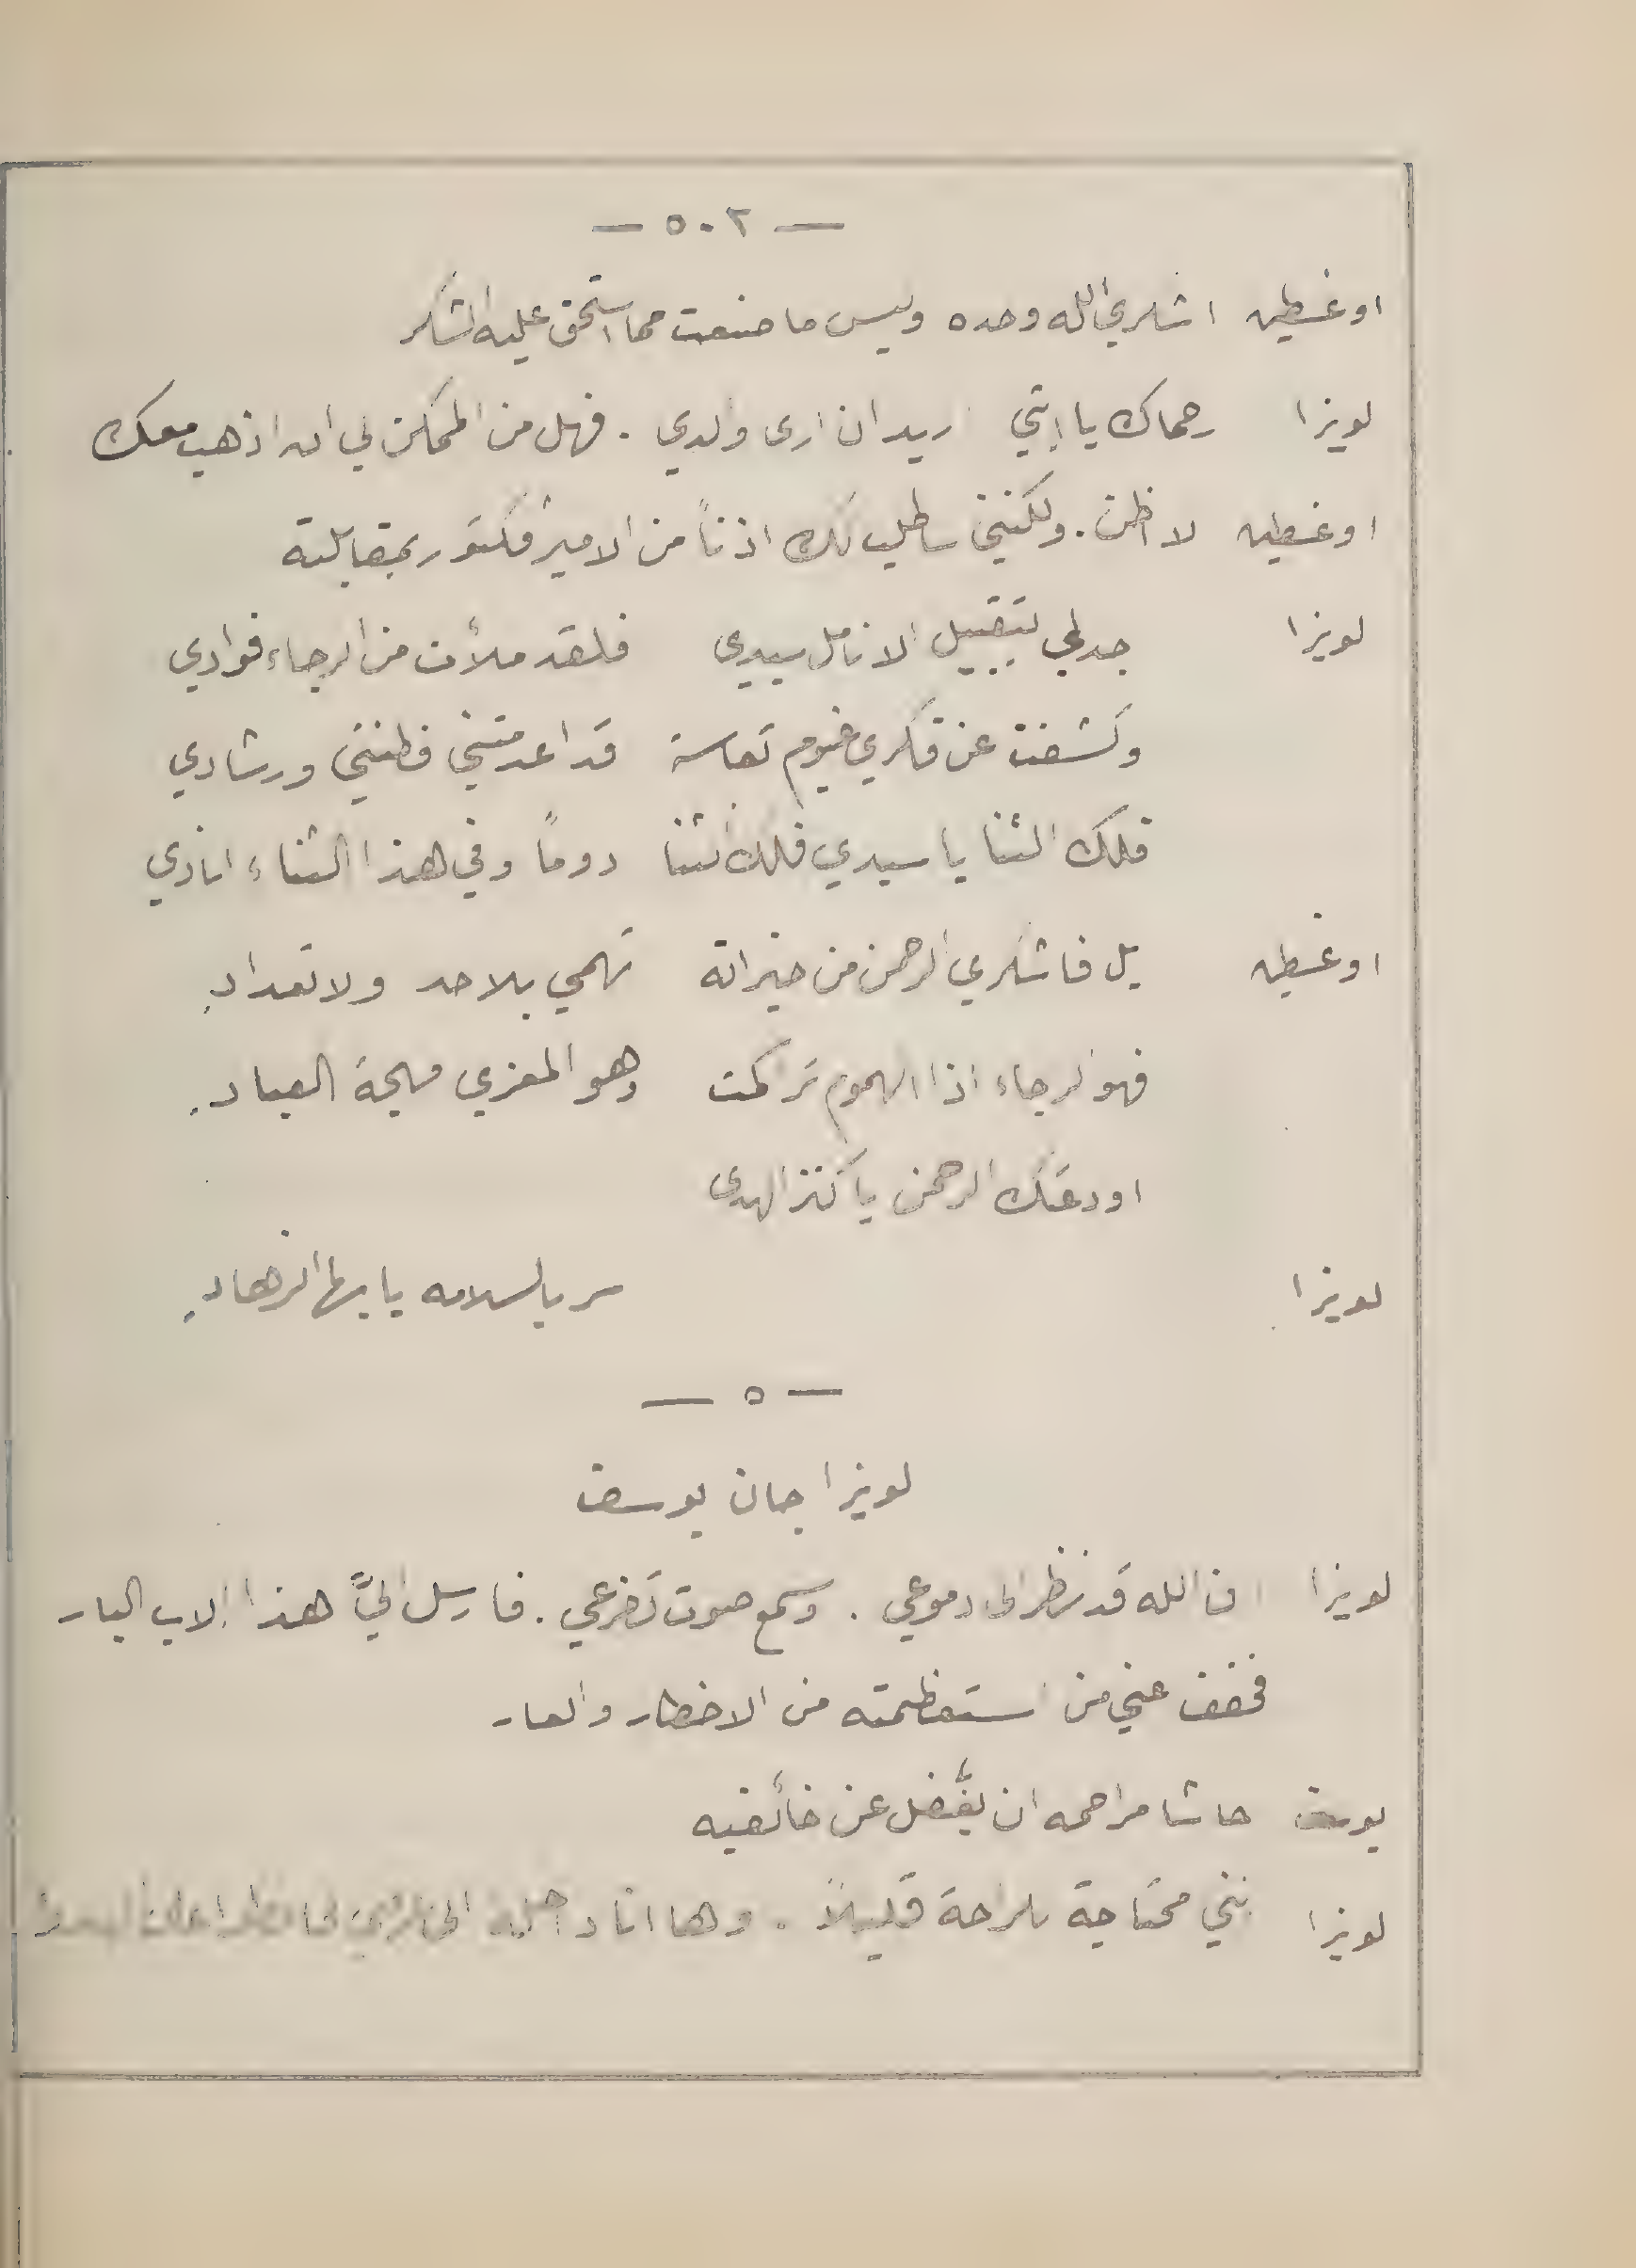 — ٥٠٢ —
اوغسطين اشكري الله وحده وليس ما صنعت مما استحق عليه الشكر
لويزا رحماك يا ابتي اريد ان ارى والدي . فهل من الممكن لي ان اذهب معك
اوغسطين لا اظن . ولكنني ساطلب لك اذناً من الامير فكتور بمقابلته
لويزا جد لي بتقبيل الانامل سيدي فلقد ملأت من الرجاء فوادي
وكشفت عن فكري غيوم تعاسة قد اعدمتني فطنتي ورشادي
فلك الثنا يا سيدي فلك الثنا دوماً وفي هذا الثناء انادي
اوغسطين بل فاشكري الرحمن من خيراته تهمي بلا حد ولا تعدادِ
فهو الرجاء اذا الهموم تراكمت وهو المعزي مهجة العبادِ
اودعتك الرحمن يا كنز الهدى
لويزا سر بالسلامه يا بها الزهادِ
— ٥ —
لويزا جان يوسف
لويزا ان الله قد نظر الى دموعي . وسمع صوت تضرعي . فارسل اليَّ هذا الاب البار
فخفف عني من استعظمته من الاخطار والعار
يوسف حاشا مراحمه ان يغفل عن خائفيه
لويزا انني محتاجة للراحة قليلاً . وها انا داخلة الى